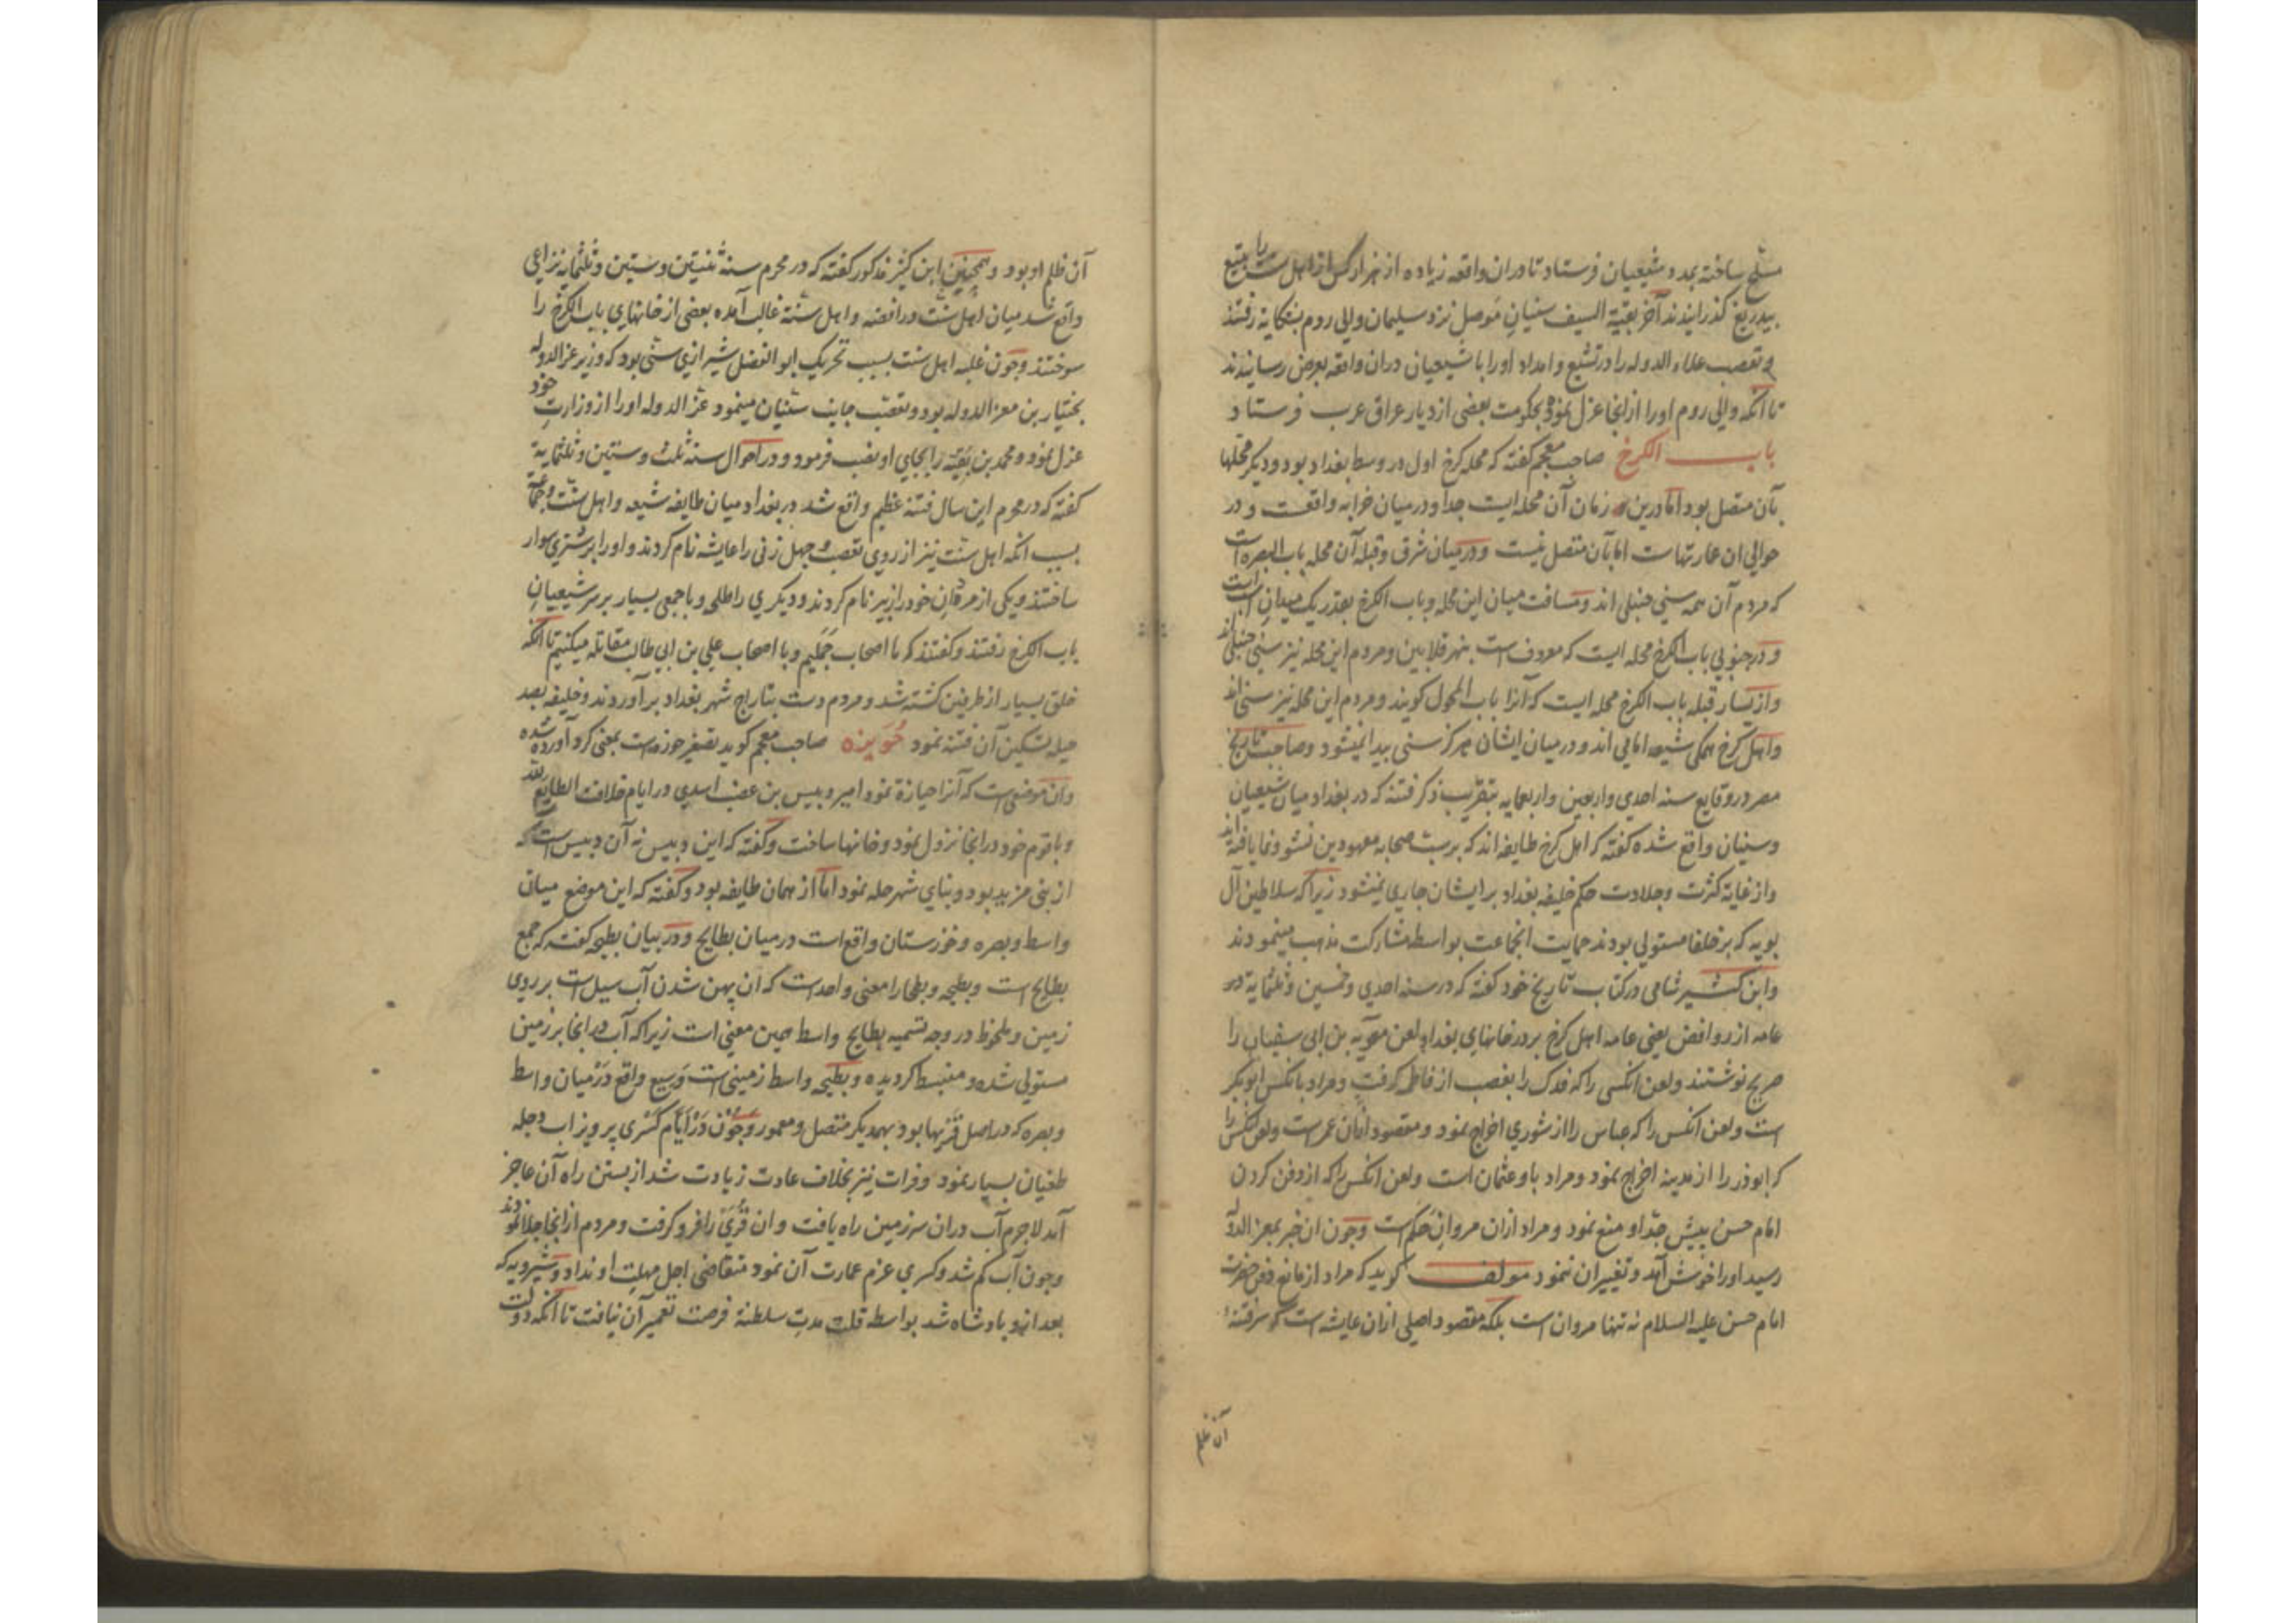 مسلح ساخته بمدد شیعیان فرستاد تا دران واقعه زیاده از هزار کس از اهل سنت را بتیغ
بیدریغ گذرانیدند آخر بقیة السیف سنیان موصل نزد سلیمان والی روم بشکایة رفتند
و تعصب علاء الدوله را در تشیع و امداد او را با شیعیان دران واقعه بعرض رسانیدند
تا آنکه والی روم او را از انجا عزل نموده بحکومت بعضی از دیار عراق عرب فرستاد
باب الکرخ صاحب معجم گفته که محله کرخ اول در وسط بغداد بود و دیگر محلها
بآن متصل بود اما درین زمان آن محله ایست جدا و در میان خرابه واقعست و در
حوالی ان عمارتهاست اما بآن متصل نیست و در میان شرق و قبله آن محله باب البصره است
که مردم آن همه سنی حنبلی اند و مسافت میان این محله و باب الکرخ بقدر یک میدان است
و در جنوبی باب الکرخ محله ایست که معروف است بنهر قلابین و مردم این محله نیز سنی حنبلی اند
و از یسار قبله باب الکرخ محله ایست که آنرا باب المحول کویند و مردم این محله نیز سنی اند
و اهل کرخ همکی شیعه امامی اند و در میان ایشان هرکز سنی پیدا نمیشود و صاحب تاریخ
مصر در وقایع سنه احدی و اربعین و اربعمایه بتقریب ذکر فتنه که در بغداد میان شیعیان
و سنیان واقع شده گفته که اهل کرخ طایفه اند که بر سب صحابه معهودین نشو و نما یافته اند
و از غایة کثرت و جلادت حکم خلیفه بغداد بر ایشان جاری نمیشود زیرا که سلاطین آل
بویه که بر خلفا مستولی بودند حمایت انجماعت بواسطه مشارکت مذهب مینمودند
و ابن کثیر شامی در کتاب تاریخ خود گفته که در سنه احدی و خمسین و ثلثمایة در
عامه از روافض یعنی عامه اهل کرخ بر در خانهای بغداد لعن معویه بن ابی سفیان را
صریح نوشتند و لعن انکسی را که فدک را بغصب از فاطمه کرفت و مراد بانکس ابوبکر
است و لعن انکس را که عباس را از شوری اخراج نمود و مقصود ازان عمر است و لعن انکس را
که ابوذر را از مدینه اخراج نمود و مراد باو عثمان است و لعن انکس را که از دفن کردن
امام حسن پیش جد او منع نمود و مراد ازان مروان حکم است و چون ان خبر بمعز الدوله
رسید او را خوش آمد و تغییر ان ننمود مولف کوید که مراد از مانع دفن حضرت
امام حسن علیه السلام نه تنها مروان است بلکه مقصود اصلی ازان عایشه است که سر فتنه
آن ظلم
آن ظلم او بود و همچنین ابن کثیر مذکور گفته که در محرم سنه ثنیتین و ستین و ثلثمایة نزاعی
واقع شد میان اهل سنت و رافضه و اهل سنة غالب آمده بعضی از خانهای باب الکرخ را
سوختند و چون غلبه اهل سنت بسبب تحریک ابو الفضل شیرازی سنی بود که وزیر عز الدوله
بختیار بن معز الدوله بود و تعصب جانب سنیان مینمود عز الدوله او را از وزارت خود
عزل نمود و محمد بن بقیه را بجای او نصب فرمود و در احوال سنه ثلث و ستین و ثلثمایة
گفته که در محرم این سال فتنه عظیم واقع شد در بغداد میان طایفه شیعه و اهل سنت و جماعت
بسبب انکه اهل سنت نیز از روی تعصب و جهل زنی را عایشه نام کردند و او را بر شتری سوار
ساختند و یکی از مردان خود را زبیر نام کردند و دیکری را طلحه و با جمعی بسیار بر سر شیعیان
باب الکرخ رفتند و گفتند که ما اصحاب جملیم و با اصحاب علی بن ابی طالب مقاتله میکنیم تا آنکه
خلق بسیار از طرفین کشته شد و مردم دست بتاراج شهر بغداد برآوردند و خلیفه بصد
حیله تسکین آن فتنه نمود حویزه صاحب معجم کوید تصغیر حوزه است بمعنی کرد آورده شده
و ان موضعی است که آنرا حیازة نمود امیر دبیس بن عفیف اسدی در ایام خلافت الطایع لله
و با قوم خود در انجا نزول نمود و خانها ساخت و گفته که این دبیس نه آن دبیس است که
از بنی مزید بود و بنای شهر حله نمود اما از همان طایفه بود و گفته که این موضع میان
واسط و بصره و خوزستان واقع است در میان بطایح و در بیان بطیحه گفته که جمع
بطایح است و بطیحه و بطحا را معنی واحد است که ان پهن شدن آب سیل است بر روی
زمین و ملحوظ در وجه تسمیه بطایح واسط همین معنی است زیرا که آب در انجا بر زمین
مستولی شده و منبسط کردیده و بطیحه واسط زمینی است وسیع واقع در میان واسط
و بصره که در اصل قریها بود بهمدیکر متصل و معمور و چون در ایام کسری پرویز اب دجله
طغیان بسیار نمود و فرات نیز بخلاف عادت زیادت شد از بستن راه آن عاجز
آمد لاجرم آب دران سرزمین راه یافت و ان قری را فرو کرفت و مردم از انجا جلا نمودند
و چون آب کم شد و کسری عزم عمارت آن نمود متقاضی اجل مهلت او نداد و شیرویه که
بعد ازو پادشاه شد بواسطه قلت مدت سلطنة فرصت تعمیر آن نیافت تا آنکه دولت